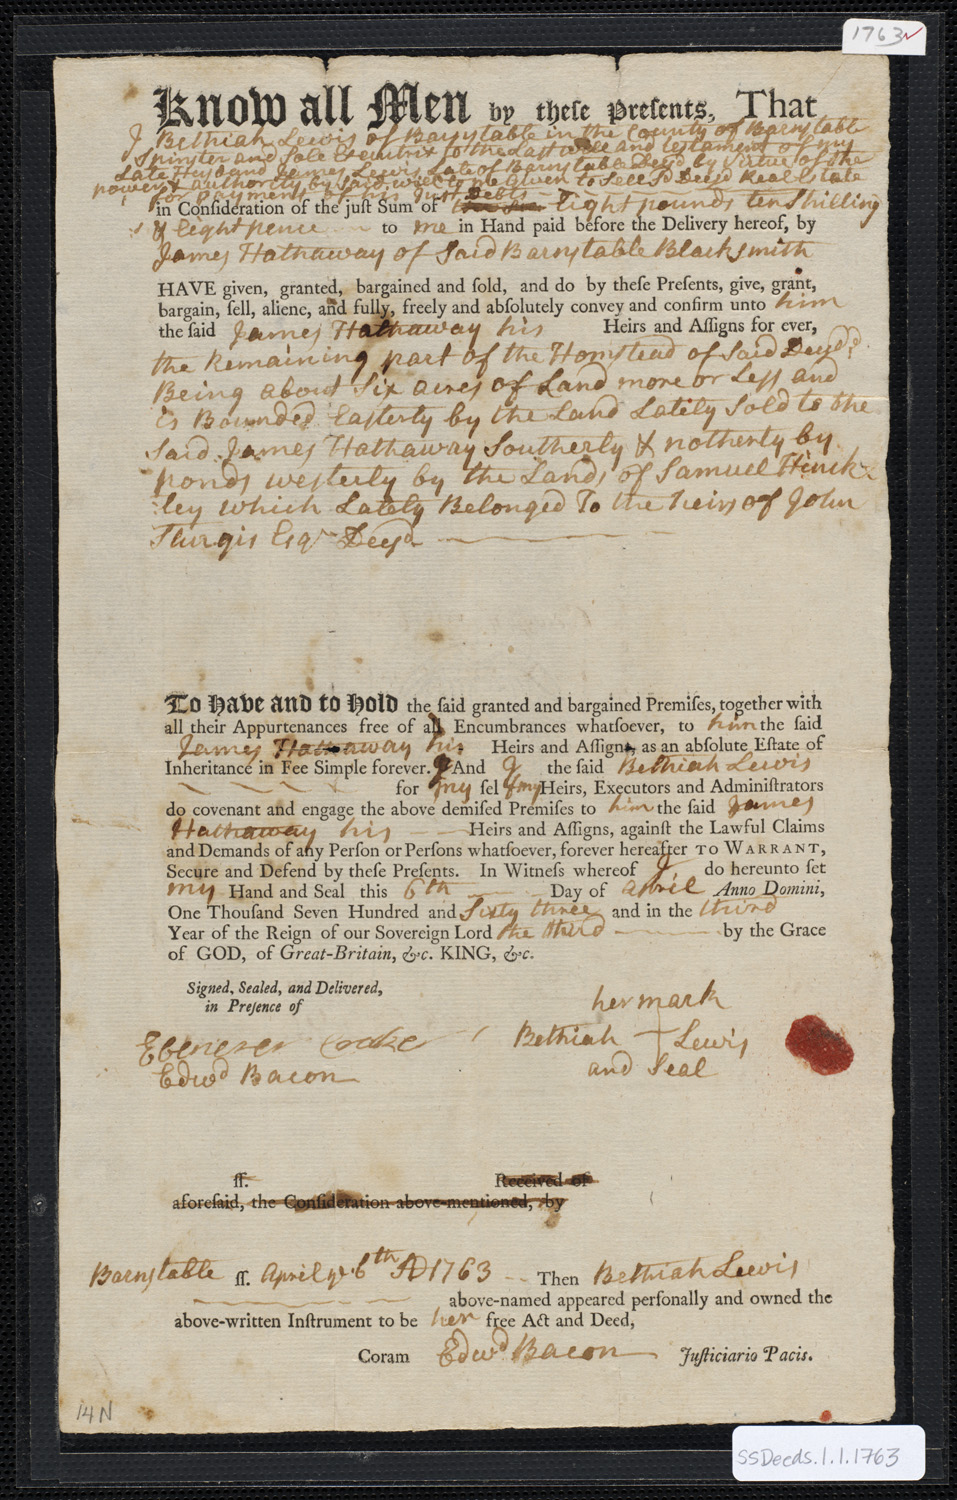 1763
Know all Men by these Presents, That
I Bethiah Lewis of Barnstable in the County of Barnstable
Spinster and Sole Executrix to the Last will and testament of my
Late Husband James Lewis Late of Barnstable Decsd by Virtue of the
power & authority by Said will to me Given to Sell Sd Decsd Real Estate
for payment of his Just Debts
in Consideration of the just Sum of Eight pounds ten Shilling
s & Eight pence to me in Hand paid before the Delivery hereof, by
James Hathaway of Said Barnstable Blacksmith
HAVE given, granted, bargained and sold, and do by these Presents, give, grant,
bargain, sell, aliene, and fully, freely and absolutely convey and confirm unto him
the said James Hathaway his Heirs and Assigns for ever,
the Remaining part of the Homstead of Said Decsd
Being about Six acres of Land more or Less and
is Bounded Easterly by the Land Lately Sold to the
Said James Hathaway Southerly & notherly by
ponds westerly by the Lands of Samuel Hinck-
ley which Lately Belonged To the heirs of John
Sturgis Esqr Decsd
To Have and to Hold the said granted and bargained Premises, together with
all their Appurtenances free of all Encumbrances whatsoever, to him the said
James Hathaway his Heirs and Assigns, as an absolute Estate of
Inheritance in Fee Simple forever. And I the said Bethiah Lewis
for my sel f my Heirs, Executors and Administrators
do covenant and engage the above demised Premises to him the said James
Hathaway his Heirs and Assigns, against the Lawful Claims
and Demands of any Person or Persons whatsoever, forever hereafter TO WARRANT,
Secure and Defend by these Presents. In Witness whereof I do hereunto set
my Hand and Seal this 6th Day of april Anno Domini,
One Thousand Seven Hundred and Sixty three and in the third
Year of the Reign of our Sovereign Lord the third by the Grace
of GOD, of Great-Britain, &c. KING, &c.
Signed, Sealed, and Delivered,
in Presence of
her mark
Ebenezer Cooke Bethiah + Lewis
Edwd Bacon and Seal
ss. Received of
aforesaid, the Consideration above-mentioned, by
Barnstable ss. April ye 6th AD 1763 Then Bethiah Lewis
above-named appeared personally and owned the
above-written Instrument to be her free Act and Deed,
Coram Edwd Bacon Justiciario Pacis.
14N
SSDeeds.1.1.1763